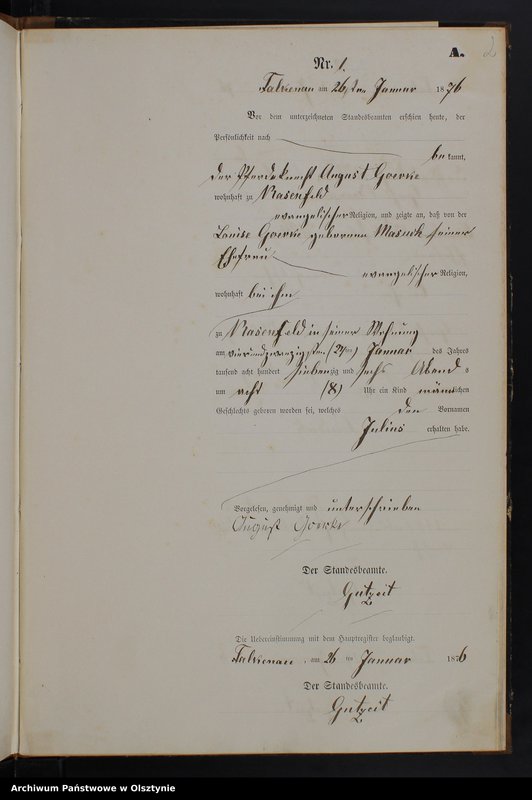 A. 2
Nr. 1.
Falkenau am 26 ten Januar 1876
Vor dem unterzeichneten Standesbeamten erschien heute, der
Persönlichkeit nach
be kannt,
der Pferdeknecht August Goerke
wohnhaft zu Rosenfeld
evangelischer Religion, und zeigte an, daß von der
Louise Goerke geborene Masuch seiner
Ehefrau
evangelischer Religion,
wohnhaft bei ihm
zu Rosenfeld in seiner Wohnung
am vierundzwanzigsten (24ten) Januar des Jahres
tausend acht hundert siebenzig und sechs Abend s
um acht (8) Uhr ein Kind männlichen
Geschlechts geboren worden sei, welches den Vornamen
Julius erhalten habe.
Vorgelesen, genehmigt und unterschrieben
August Goerke
Der Standesbeamte.
Gutzeit
Die Uebereinstimmung mit dem Hauptregister beglaubigt.
Falkenau, am 26 ten Januar 1876
Der Standesbeamte.
Gutzeit
Archiwum Państwowe w Olsztynie